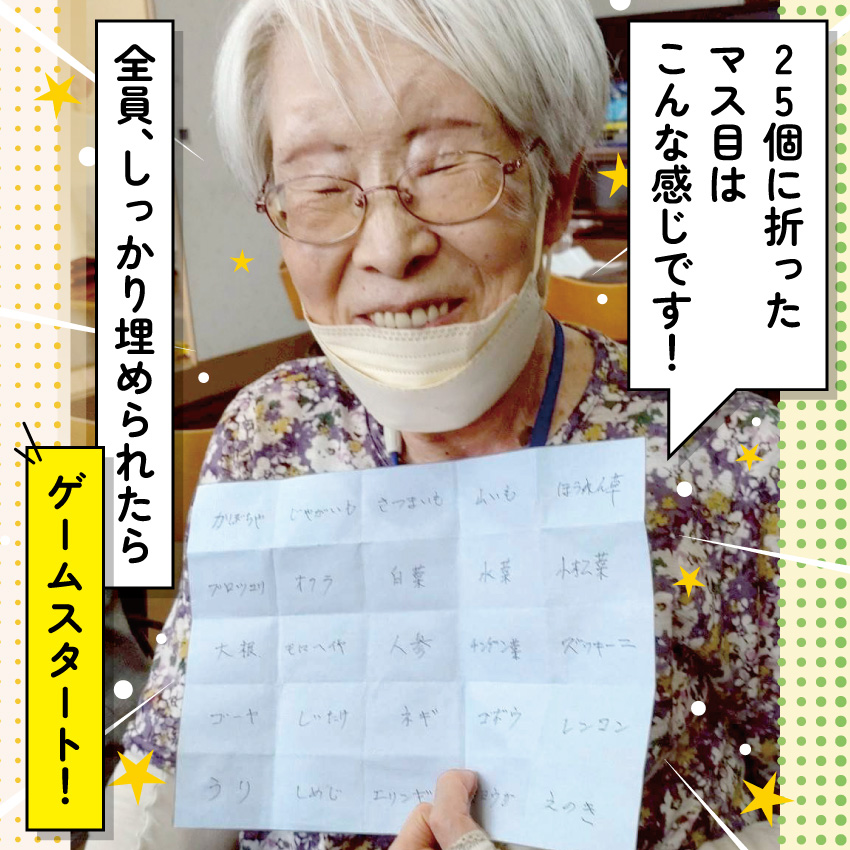 25個に折った
マス目は
こんな感じです!
全員、しっかり埋められたら
ゲームスタート!
かぼちゃ じゃがいも さつまいも 山いも ほうれん草
ブロッコリ オクラ 白菜 水菜 小松菜
大根 モロヘイヤ 人参 チンゲン菜 ズッキーニ
ゴーヤ しいたけ ネギ ゴボウ レンコン
うり しめじ エリンギ えのき